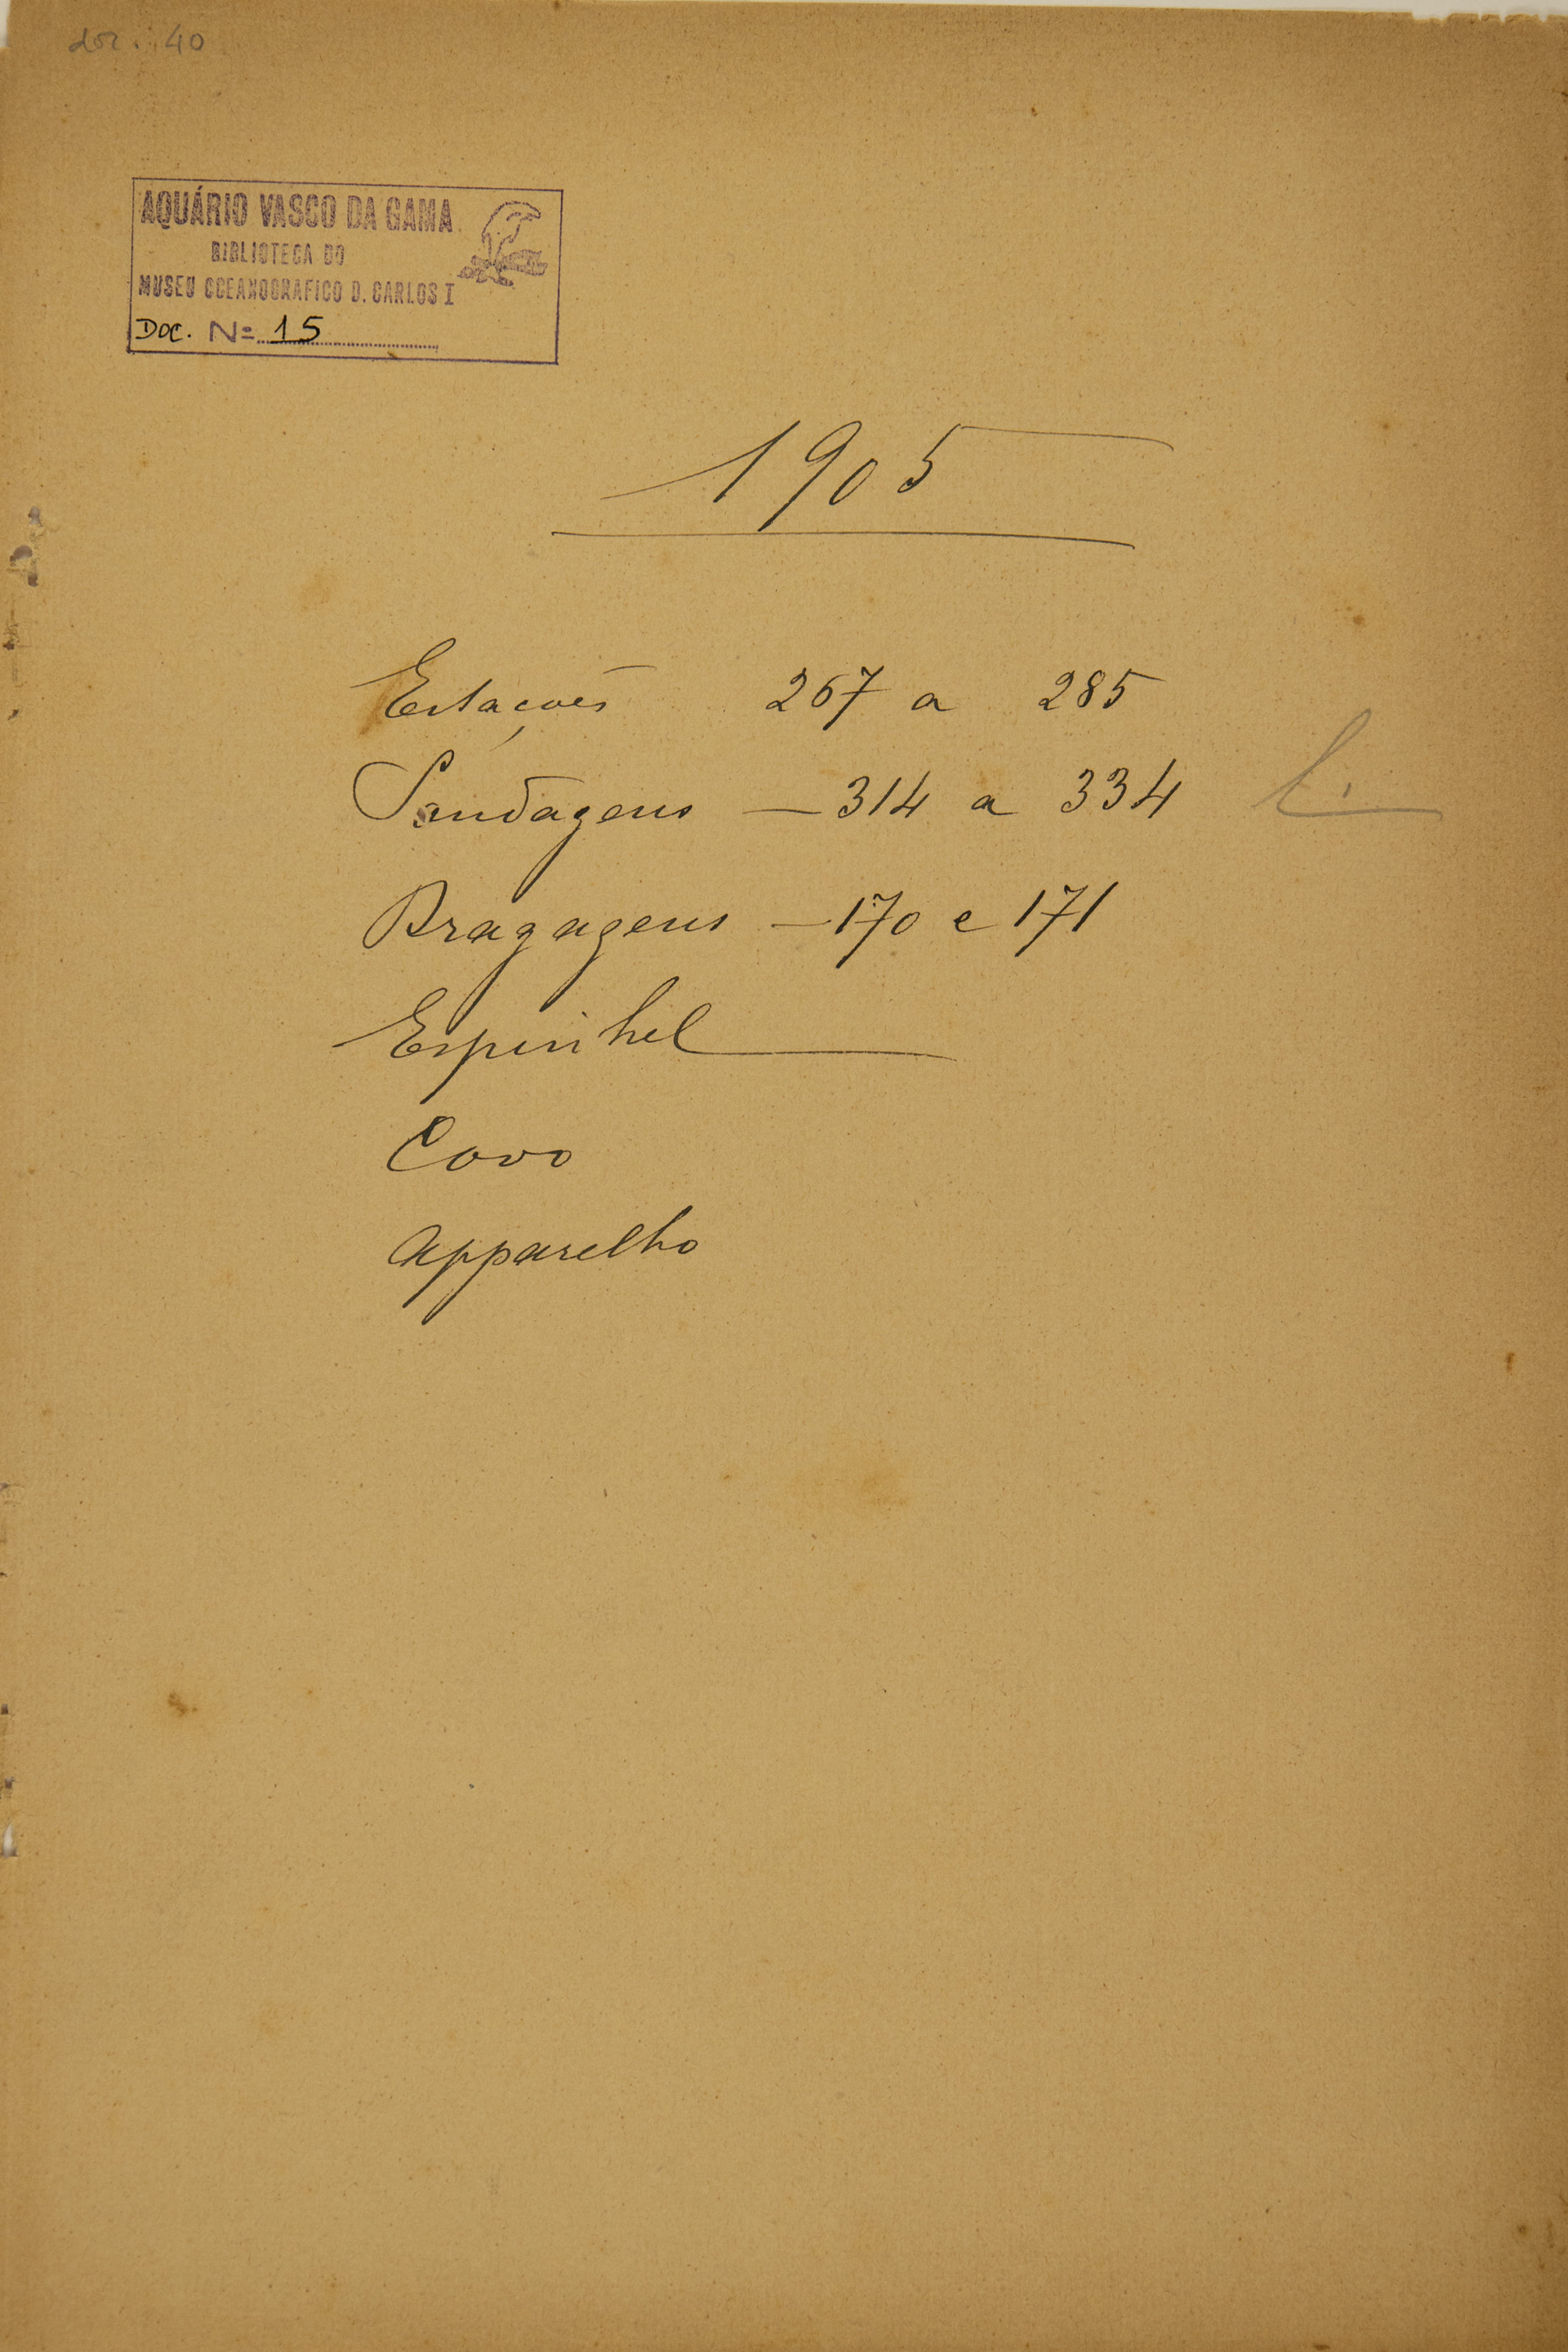 doc. 40
AQUÁRIO VASCO DA GAMA
BIBLIOTECA DO
MUSEU OCEANOGRAFICO D. CARLOS I
Doc. Nº 15
1905
Estações 267 a 285
Sondagens — 314 a 334
Dragagens — 170 e 171
Espinhel
Covo
Apparelho